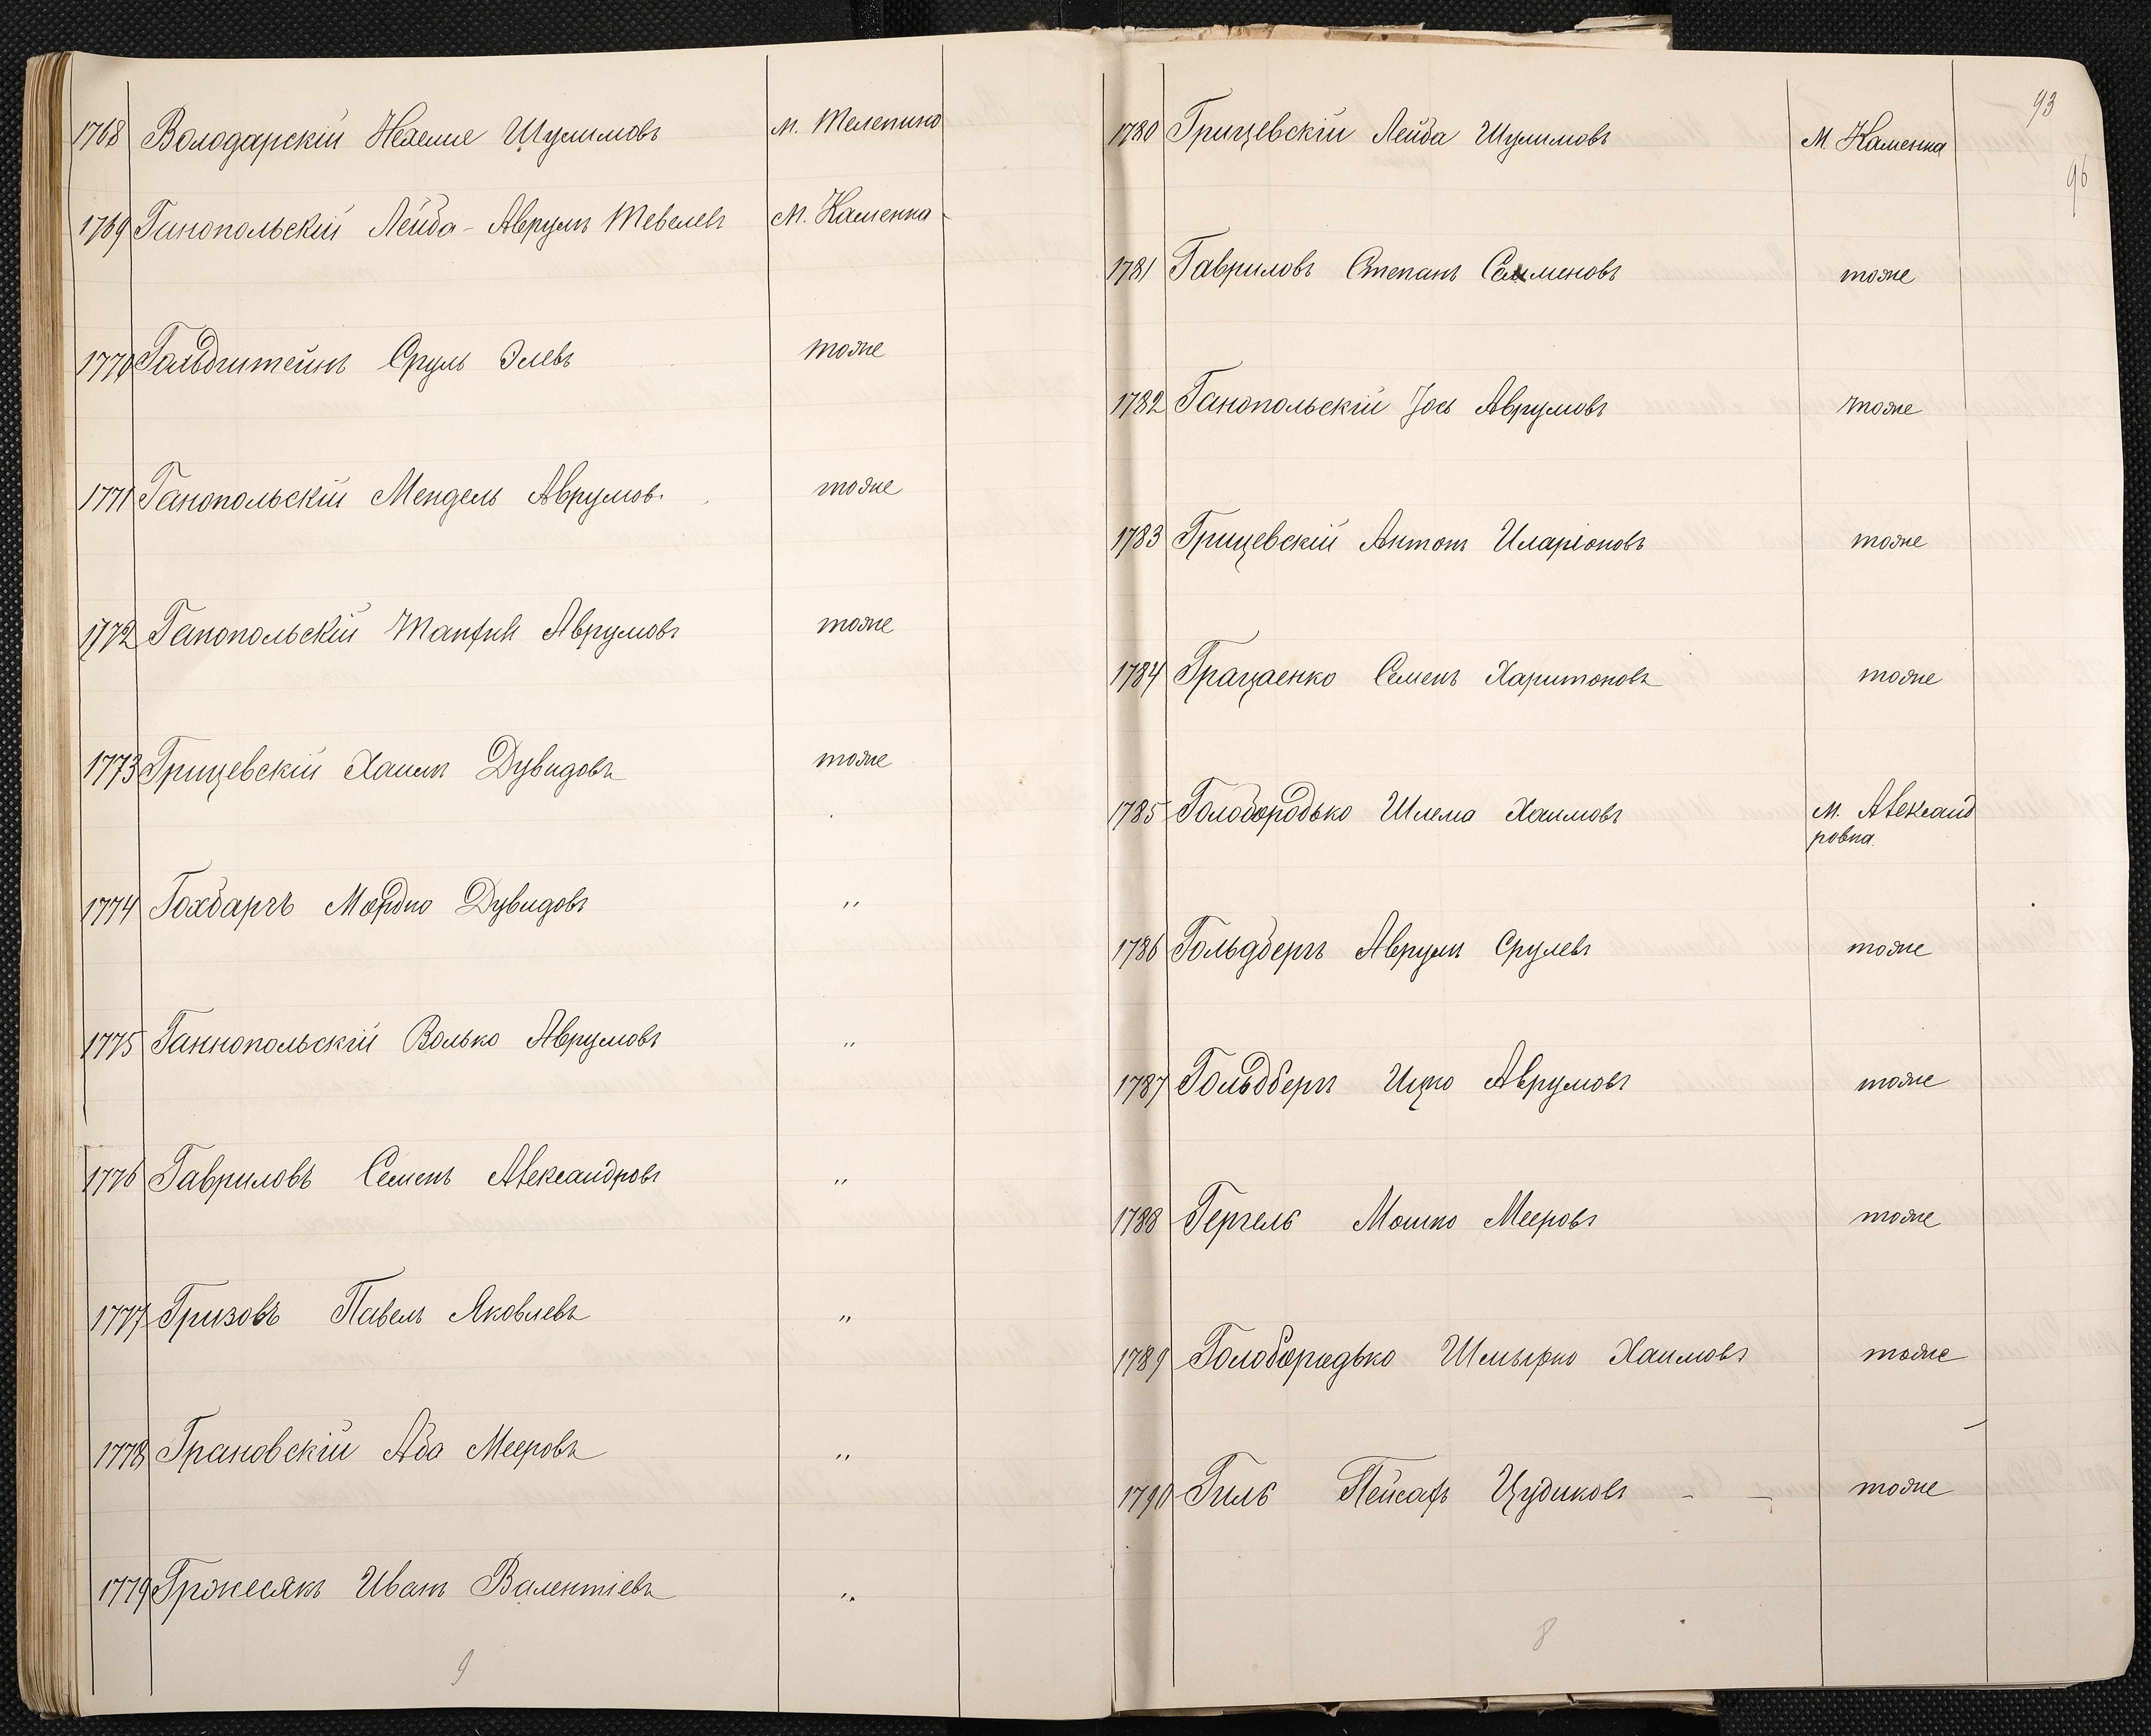 1768 Володарскій Нехемя Шулимовъ м. Телепино
1769 Ганопольскій Лейба-Аврумъ Тевелевъ М. Каменка
1770 Гольдштейнъ Сруль Элевъ тоже
1771 Ганопольскій Мендель Аврумов. тоже
1772 Ганопольскій Манфик Аврумовъ тоже
1773 Грицевскій Хаимъ Дувидовъ тоже
1774 Гохбаргъ Мордко Дувидовъ "
1775 Ганнопольскій Волько Аврумовъ "
1776 Гавриловъ Семенъ Александровъ "
1777 Гризовъ Павелъ Яковлевъ "
1778 Грановскій Аба Мееровъ "
1779 Гржесякъ Иванъ Валентіевъ "
9
93
96
1780 Грицевскій Лейба Шулимовъ М. Каменка
1781 Гавриловъ Степанъ Семеновъ тоже
1782 Ганопольскій Іось Аврумовъ тоже
1783 Грицевскій Антонъ Иларіоновъ тоже
1784 Грацаенко Семенъ Харитоновъ тоже
1785 Голобородько Шлема Хаимовъ М. Александ
ровка.
1786 Гольдбергъ Аврумъ Срулевъ тоже
1787 Гольдбергъ Ицко Аврумовъ тоже
1788 Гергель Мошко Мееровъ тоже
1789 Голобородько Шмырко Хаимовъ тоже
1790 Гиль Пейсахъ Цудиковъ - - тоже
8